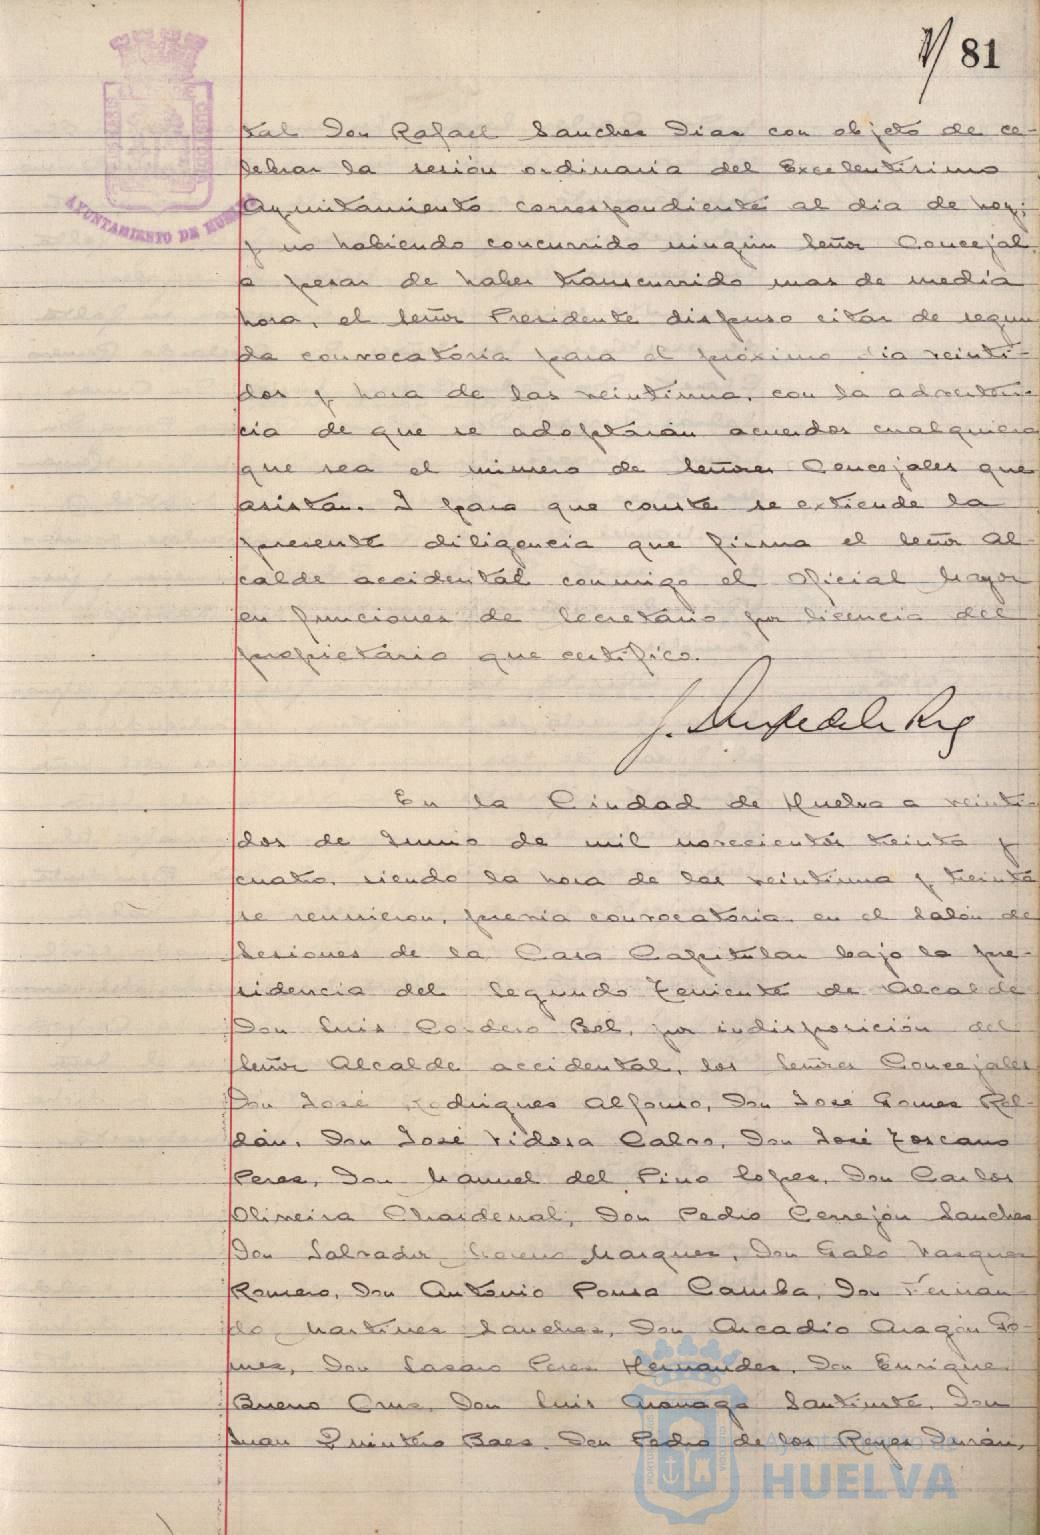 81
AYUNTAMIENTO DE HUELVA
tal Don Rafael Sanchez Diaz con objeto de ce-
lebrar la sesión ordinaria del Excelentísimo
Ayuntamiento correspondiente al dia de hoy;
y no habiendo concurrido ningún Señor Concejal
a pesar de haber transcurrido mas de media
hora, el Señor Presidente dispuso citar de segun
da convocatoria para el próximo dia veinti-
dos y hora de las veintiuna, con la adverten-
cia de que se adoptarán acuerdos cualquiera
que sea el número de Señores Concejales que
asistan. Y para que conste se extiende la
presente diligencia que firma el Señor Al-
calde accidental conmigo el Oficial Mayor
en funciones de Secretario por licencia del
propietario que certifico.
En la Ciudad de Huelva a veinti-
dos de Junio de mil novecientos treinta y
cuatro, siendo la hora de las veintiuna y treinta
se reunieron, previa convocatoria, en el Salón de
Sesiones de la Casa Capitular bajo la pre-
sidencia del Segundo Teniente de Alcalde
Don Luis Cordero Bel, por indisposición del
Señor Alcalde accidental, los Señores Concejales
Don José Rodriguez Alfonso, Don José Gomez Rol-
dán, Don José Vidosa Calvo, Don José Toscano
Perez, Don Manuel del Pino Lopez, Don Carlos
Oliveira Chardenal, Don Pedro Cerrejón Sanchez
Don Salvador Moreno Marquez, Don Galo Vazquez
Romero, Don Antonio Pousa Camba, Don Fernan
do Martinez Sanchez, Don Arcadio Aragón Gó-
mez, Don Lazaro Perez Hernandez, Don Enrique
Bueno Cruz, Don Luis Santiuste, Don
Juan Quintero Baez, Don Pedro de los Reyes Durán,
Ayuntamiento de
HUELVA